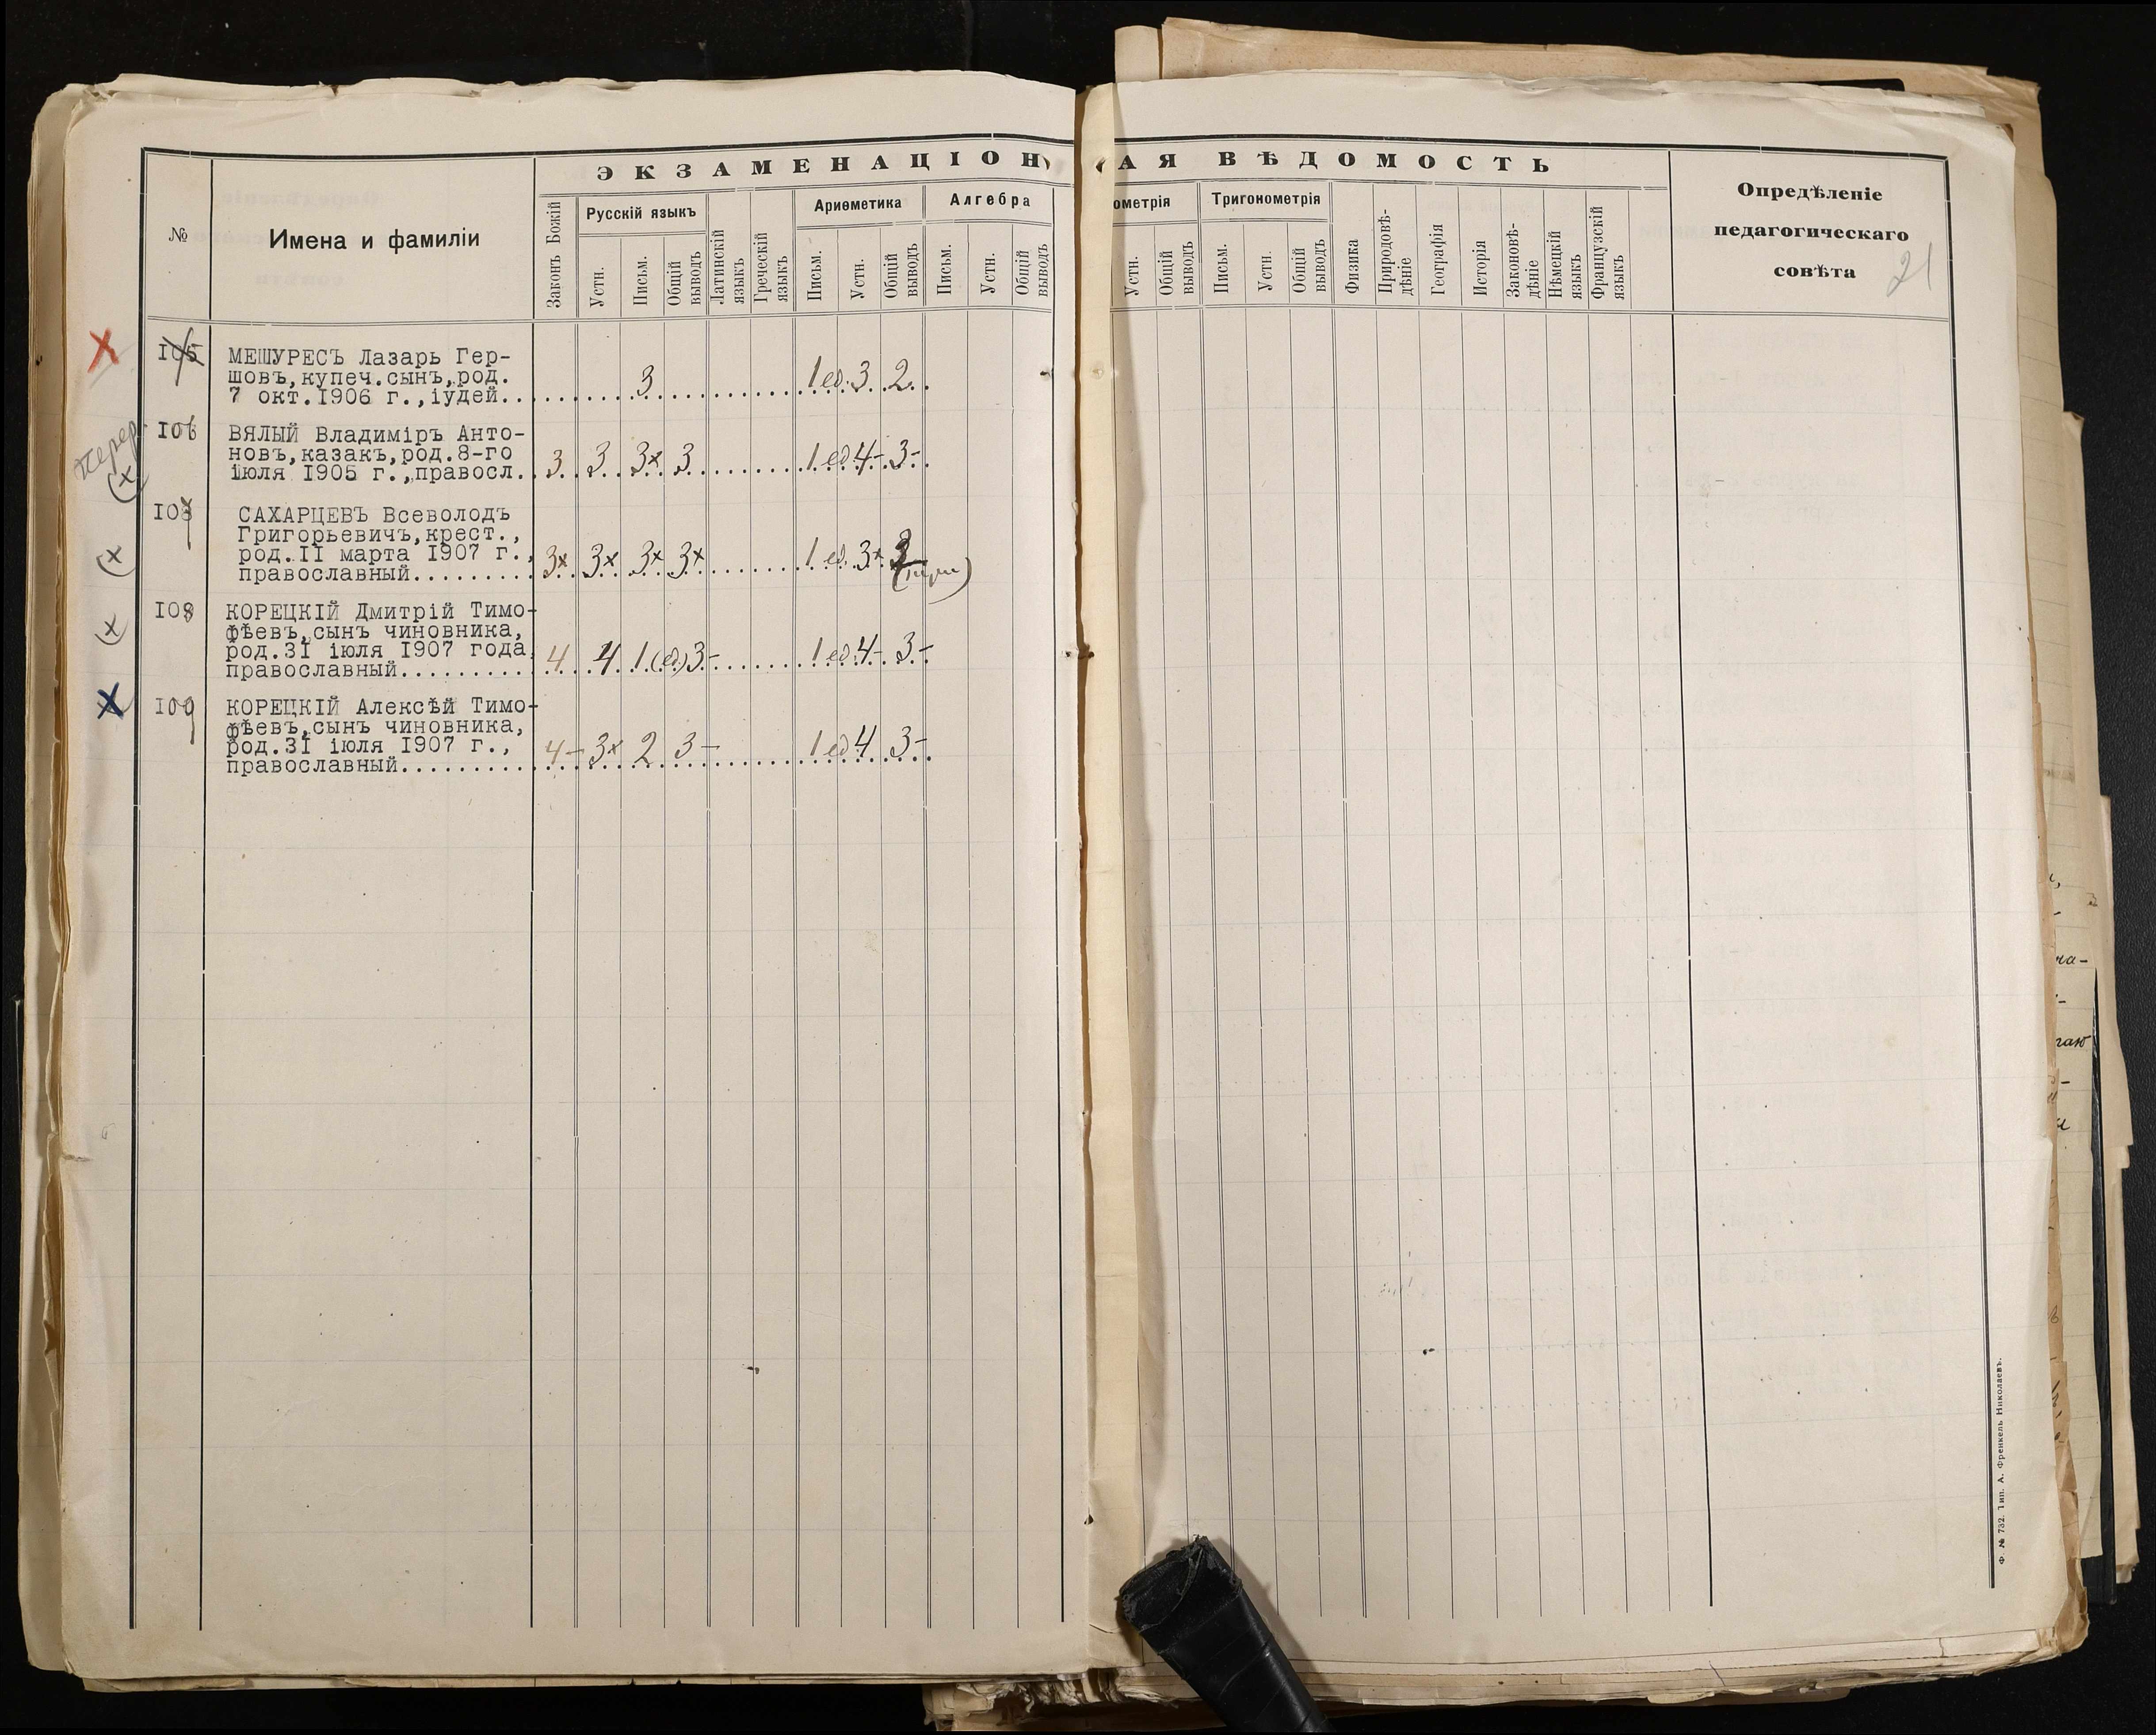 ЭКЗАМЕНАЦІОН
АЯ ВѢДОМОСТЬ
№
Имена и фамиліи
Законъ Божій
Русскій языкъ
Устн.
Письм.
Общій выводъ
Латинскій языкъ
Греческій языкъ
Ариѳметика
Письм.
Устн.
Общій выводъ
Алгебра
Письм.
Устн.
Общій выводъ
ометрія
Устн.
Общій выводъ
Тригонометрія
Письм.
Устн.
Общій выводъ
Физика
Природовѣ-
дѣніе
Географія
Исторія
Законовѣ-
дѣніе
Нѣмецкій языкъ
Французскій языкъ
Опредѣленіе
педагогическаго
совѣта
21
105
МЕШУРЕСЪ Лазарь Гер-
шовъ,купеч.сынъ,род.
7 окт.1906 г.,іудей.. 3 1 ед. 3 2
106
ВЯЛЫЙ Владиміръ Анто-
новъ,казакъ,род.8-го
іюля 1905 г.,правосл.. 3 3 3x 3 1 ед 4- 3-
САХАРЦЕВЪ Всеволодъ
Григорьевичъ,крест.,
род.II марта 1907 г.,
православный......... 3x 3x 3x 3x 1 ед. 3x 3
108
КОРЕЦКІЙ Дмитрій Тимо-
фѣевъ,сынъ чиновника,
род.31 іюля 1907 года,
православный.......... 4 4 1 (ед.) 3- 1 ед 4- 3-
109
КОРЕЦКІЙ Алексѣй Тимо-
фѣевъ,сынъ чиновника,
род.31 іюля 1907 г.,
православный.......... 4- 3x 2 3- 1 ед 4 3-
Ф. № 732. Тип. А. Френкель Николаевъ.